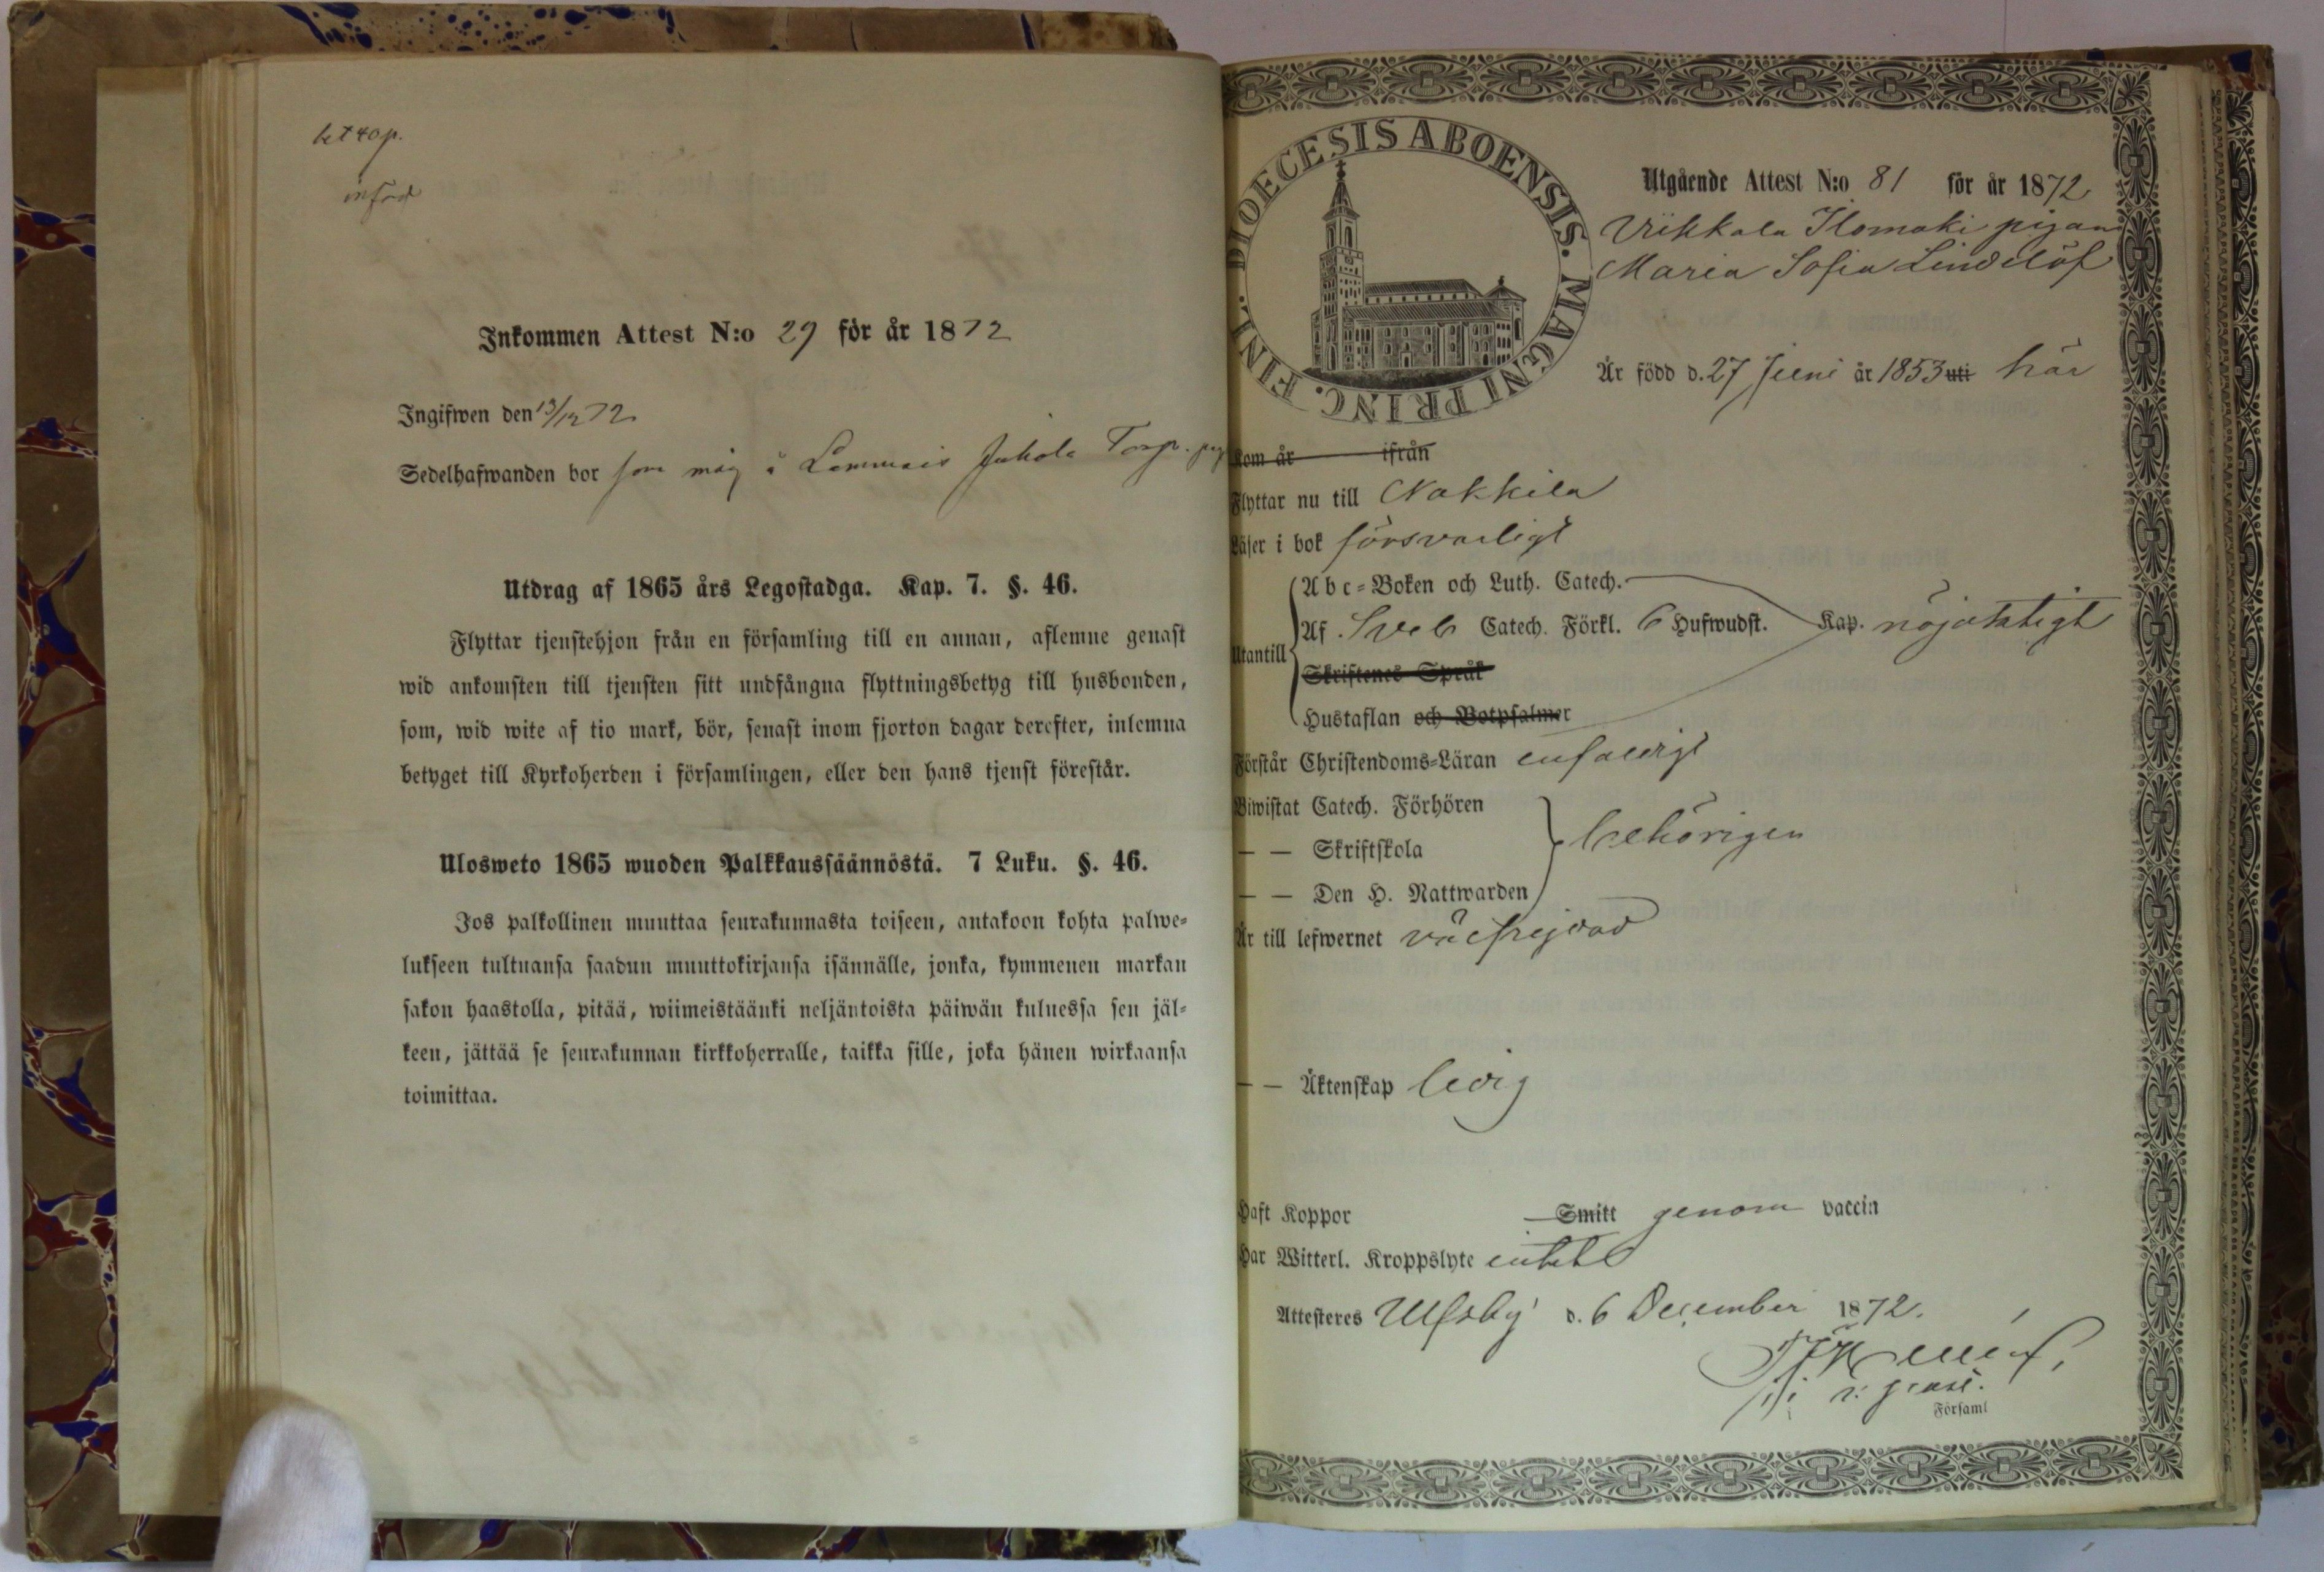 bet 40 p.
införd
Inkommen Attest N:o 29 för år 1872
Ingifwen den 13/12 72
Sedelhafwanden bor som måg å Lammais Juhola Torp.
Utdrag af 1865 års Legostadga. Kap. 7. §. 46.
Flyttar tjenstehjon från en församling till en annan, aflemne genast
wid ankomsten till tjensten sitt undfångna flyttningsbetyg till husbonden,
som, wid wite af tio mark, bör, senast inom fjorton dagar derefter, inlemna
betyget till Kyrkoherden i församlingen, eller den hans tjenst förestår.
Ulosweto 1865 wuoden Palkkaussäännöstä. 7 Luku. §. 46.
Jos palkollinen muuttaa seurakunnasta toiseen, antakoon kohta palwe=
lukseen tultuansa saadun muuttokirjansa isännälle, jonka, kymmenen markan
sakon haastolla, pitää, wiimeistäänki neljäntoista päiwän kuluessa sen jäl=
keen, jättää se seurakunnan kirkkoherralle, taikka sille, joka hänen wirkaansa
toimittaa.
FINL. DIOECESIS ABOENSIS. MAGNI PRINC.
Utgående Attest N:o 81 för år 1872
Viikkala Ilomäki pigan
Maria Sofia Lindelöf
Är född d. 27 Juni år 1853 uti här
Kom år ifrån
Flyttar nu till Nakkila
Läser i bok försvarligt
Utantill
Abc=Boken och Luth. Catech.
Af Sveb Catech. Förkl. 6 Hufwudst. Kap. nöjaktigt
Skriftenes Språk
Hustaflan och Botpsalmer
Förstår Christendoms=Läran enfaldigt
Biwistat Catech. Förhören
— — Skriftskola behörigen
— — Den H. Nattwarden
Är till lefwernet välfrejdad
— — Äktenskap ledig
Haft Koppor Smitt genom vaccin
Har Witterl. Kroppslyte intet
Attesteres Ulfsby d. 6 December 1872.
Församl